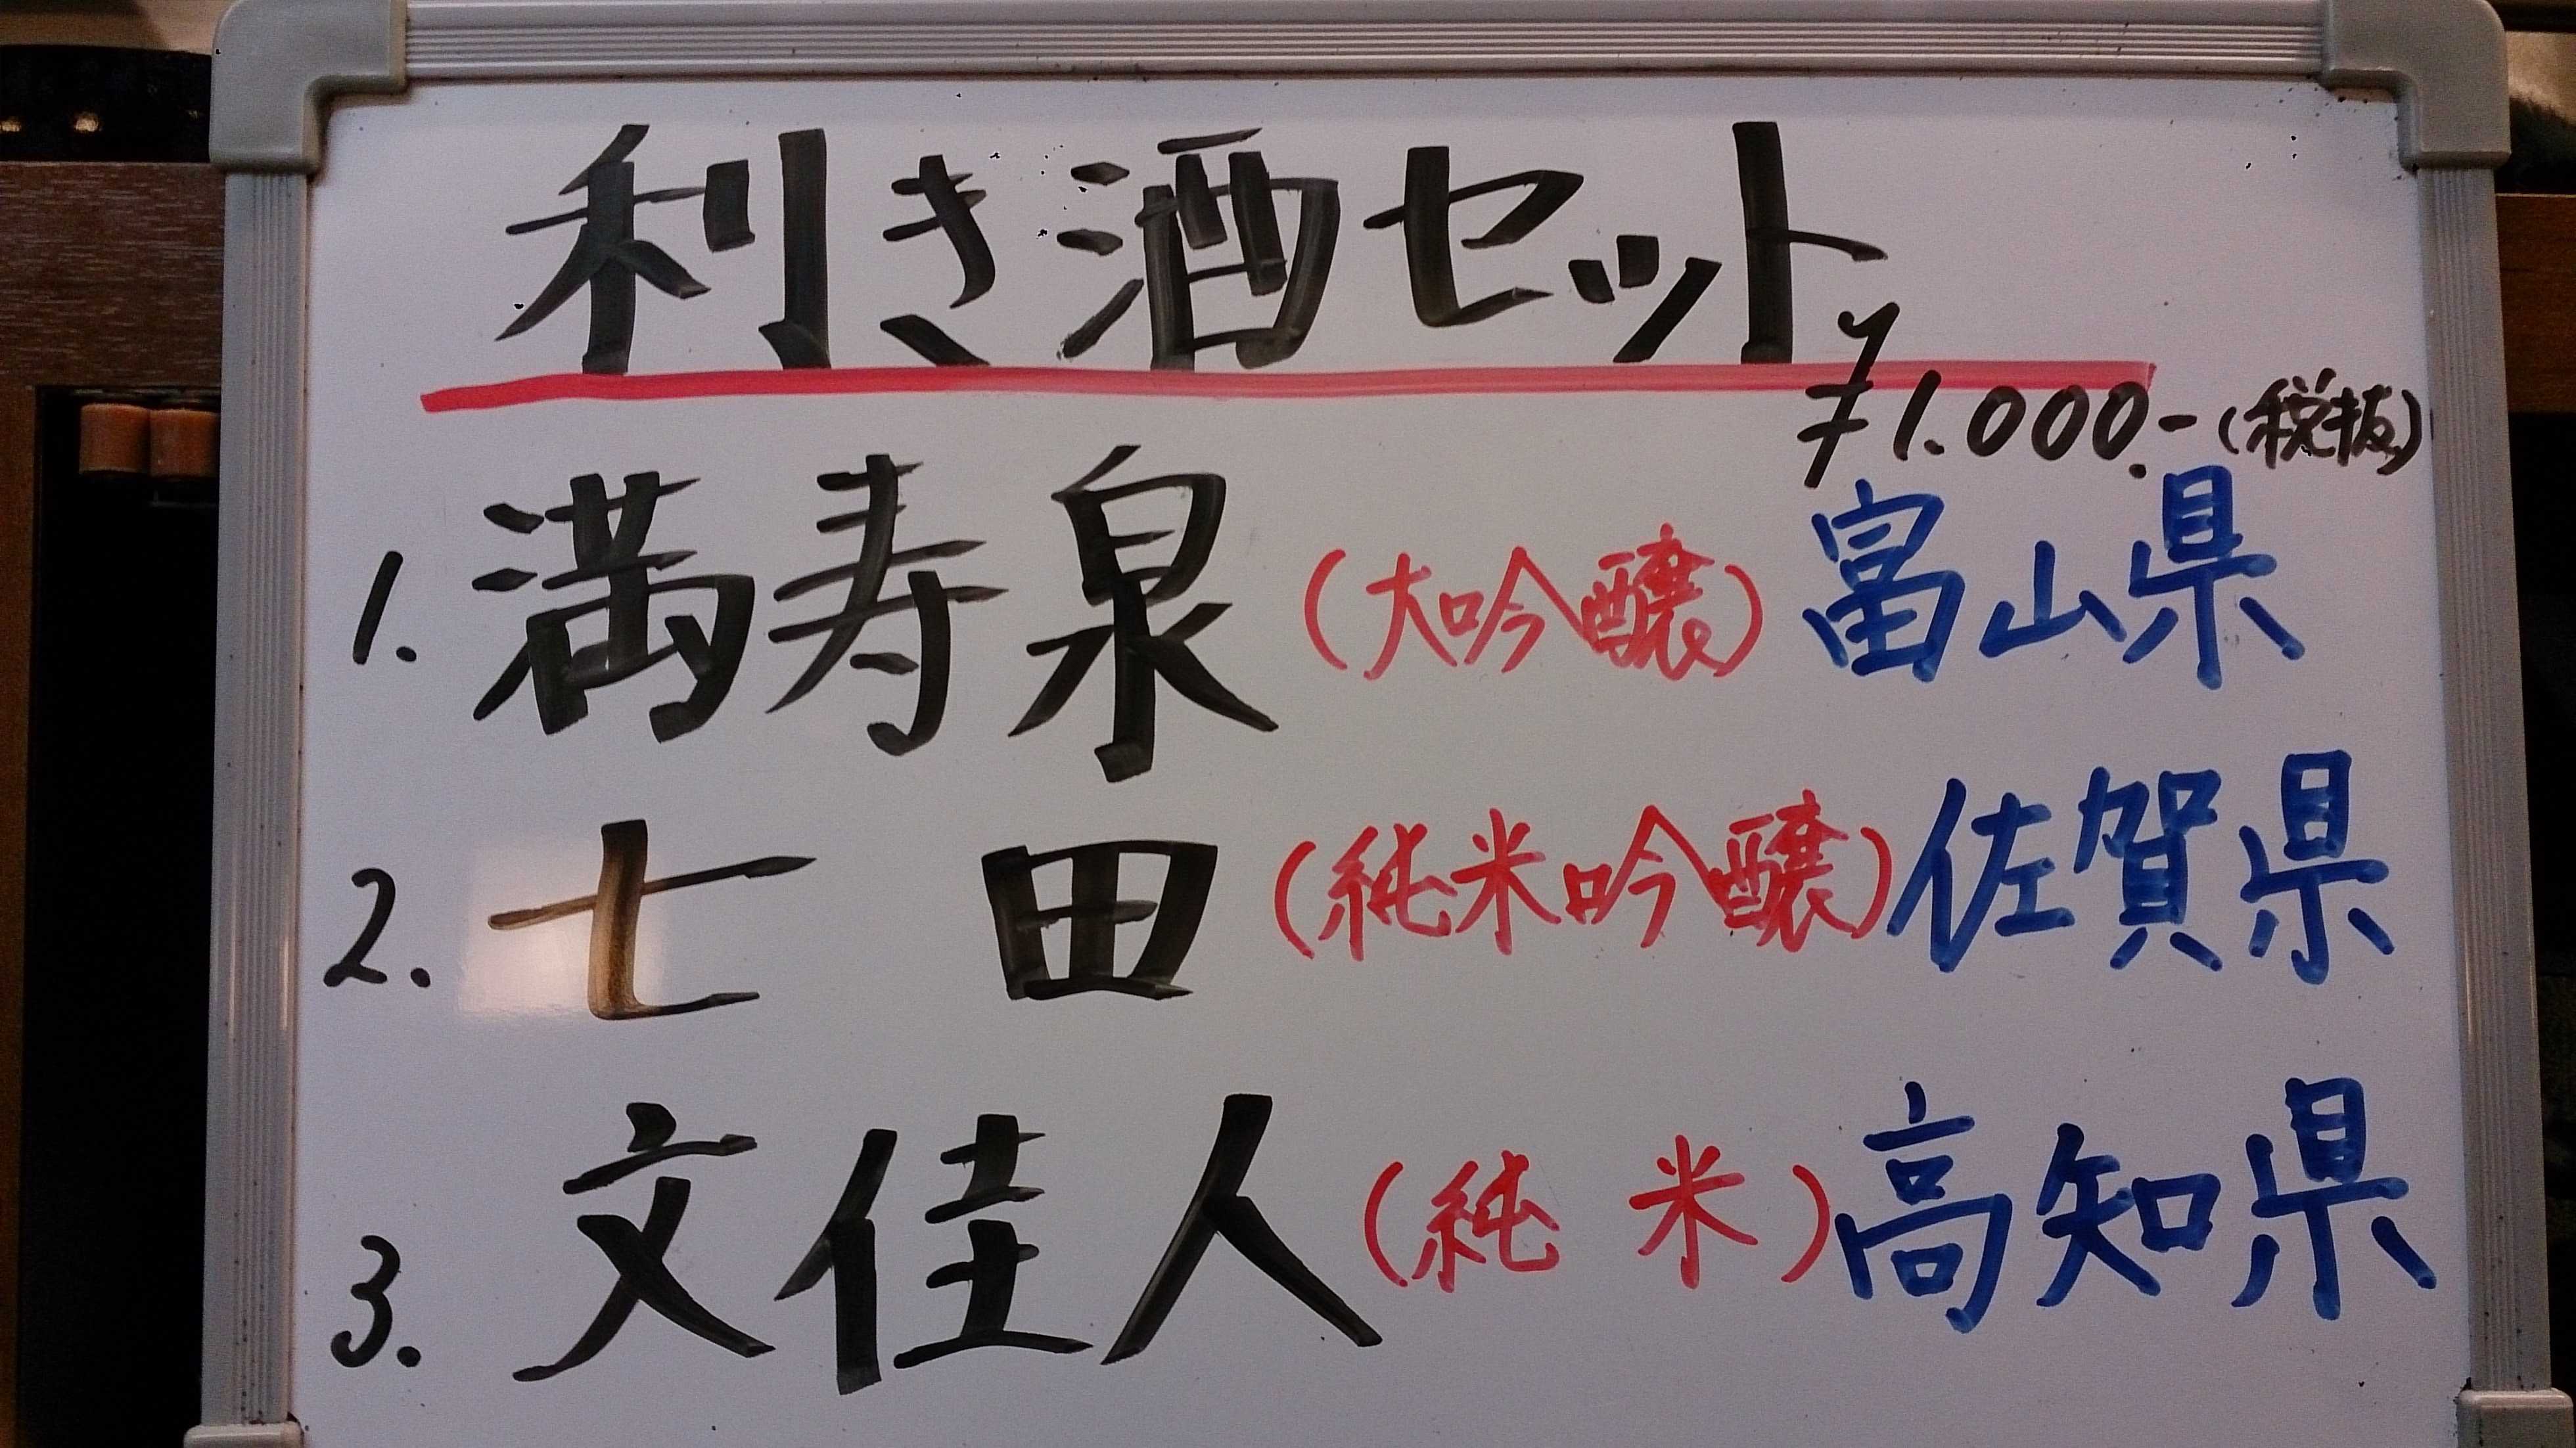 利き酒セット
¥1.000.-(税抜)
1. 満寿泉 (大吟醸)富山県
2. 七田 (純米吟醸) 佐賀県
3. 文佳人 (純米) 高知県